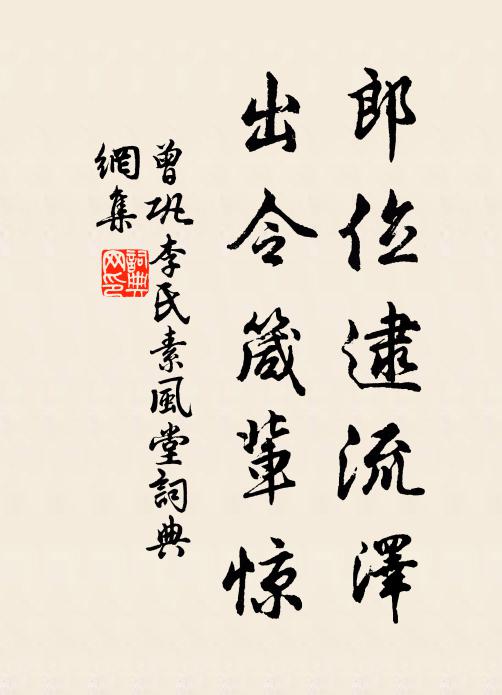 郎位逮流澤
出令箴輩惊
曾巩李氏素風堂詞典
網集
詞典
网印